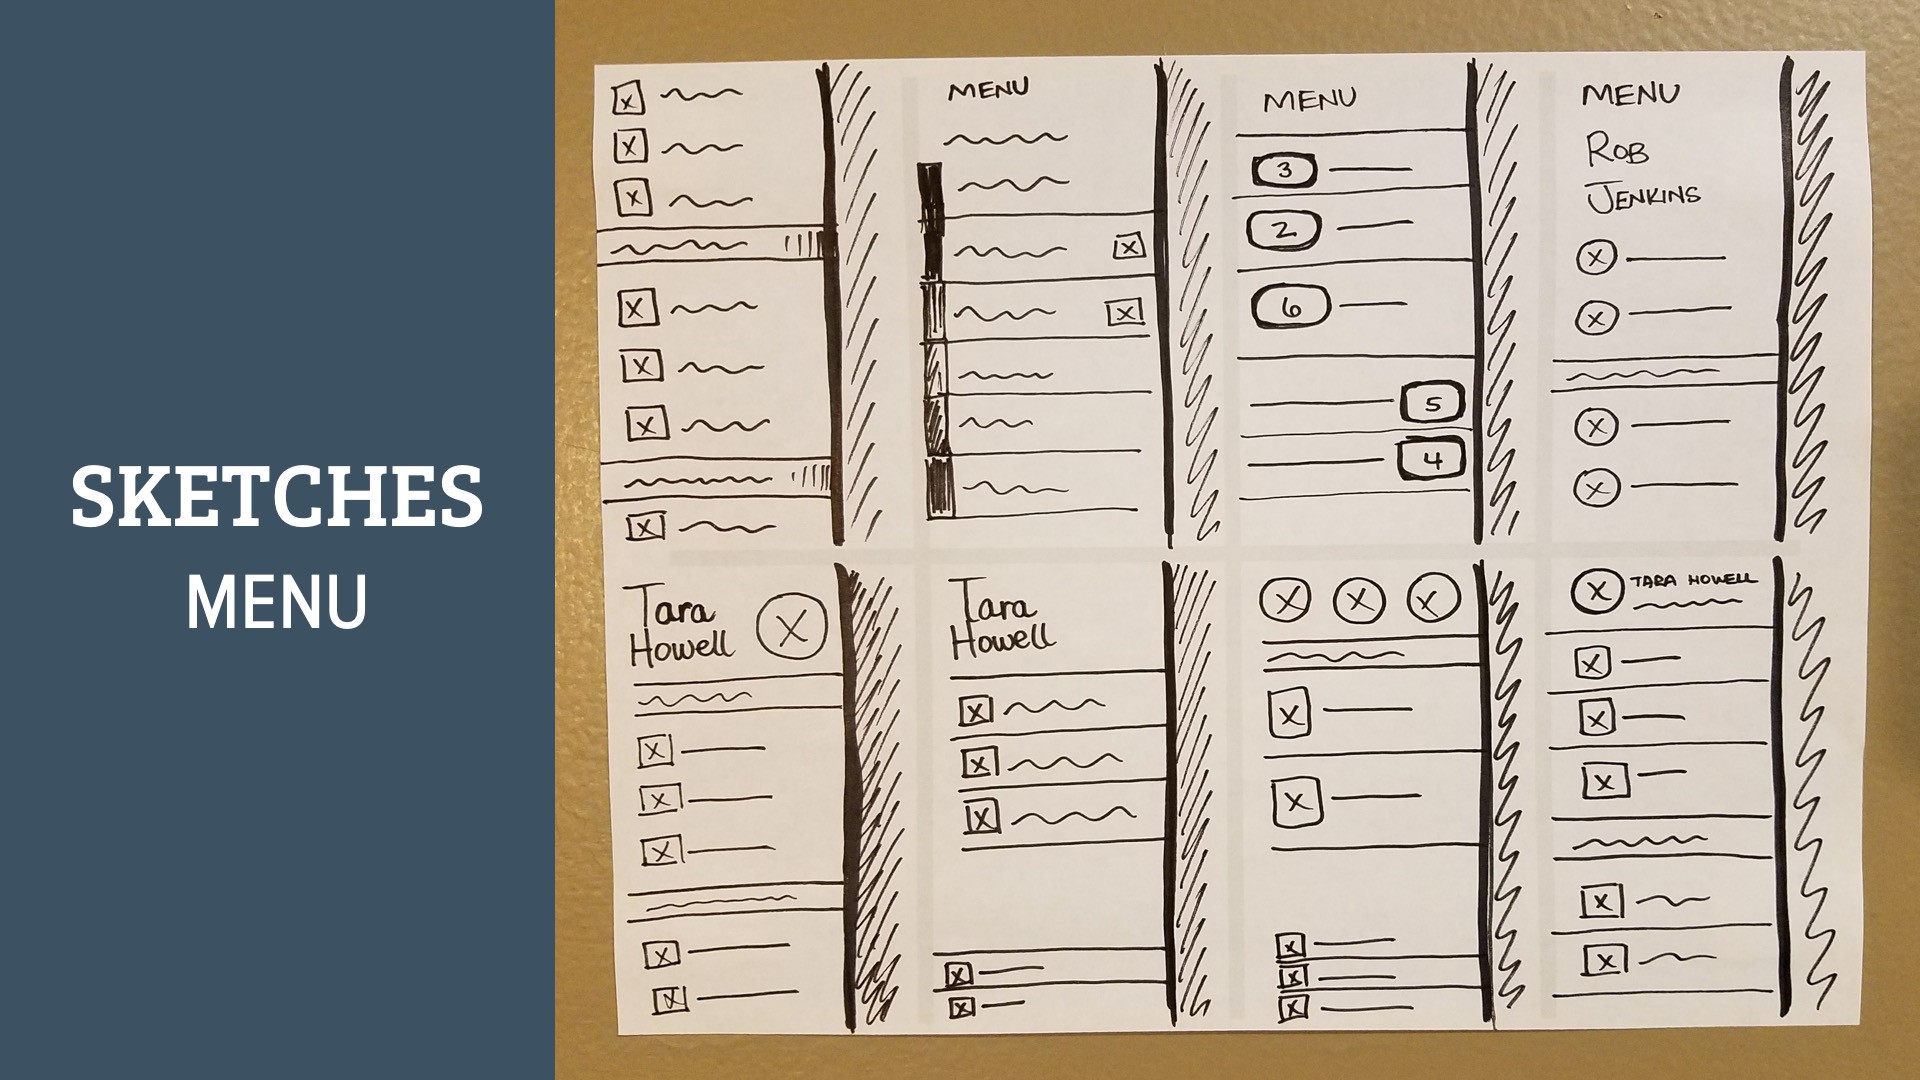 SKETCHES
MENU
MENU
MENU
3
2
6
5
4
MENU
ROB
JENKINS
Tara
Howell
Tara
Howell
TARA HOWELL